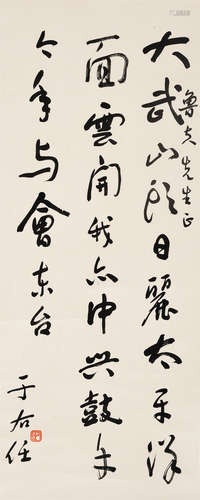 魯夫先生正
大武山頭日麗太平洋
面雲開我亦中興鼓手
今年与會東台
于右任